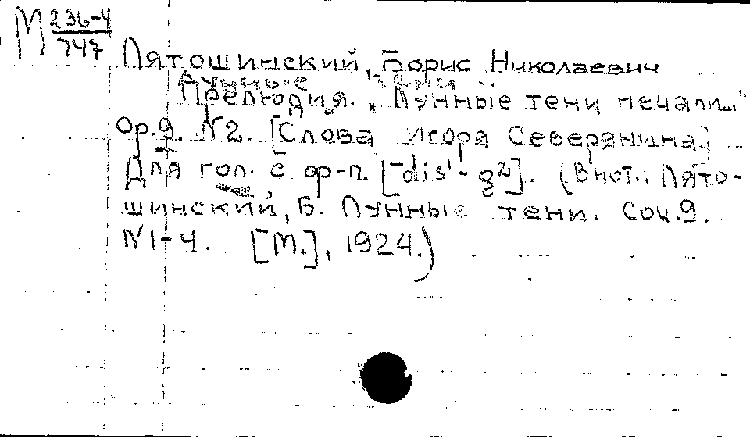 М 236-4
747
Лятошинский, Борис Николаевич
Лунные тени
Прелюдия. "Лунные тени печали..."
Ор.9 №2. [Слова Игоря Северянина]
Для гол. с ф-п. [dis¹-g²]. (В нот.: Лято-
шинский, Б. Лунные тени. Соч.9.
№1-4. [М.], 1924.)